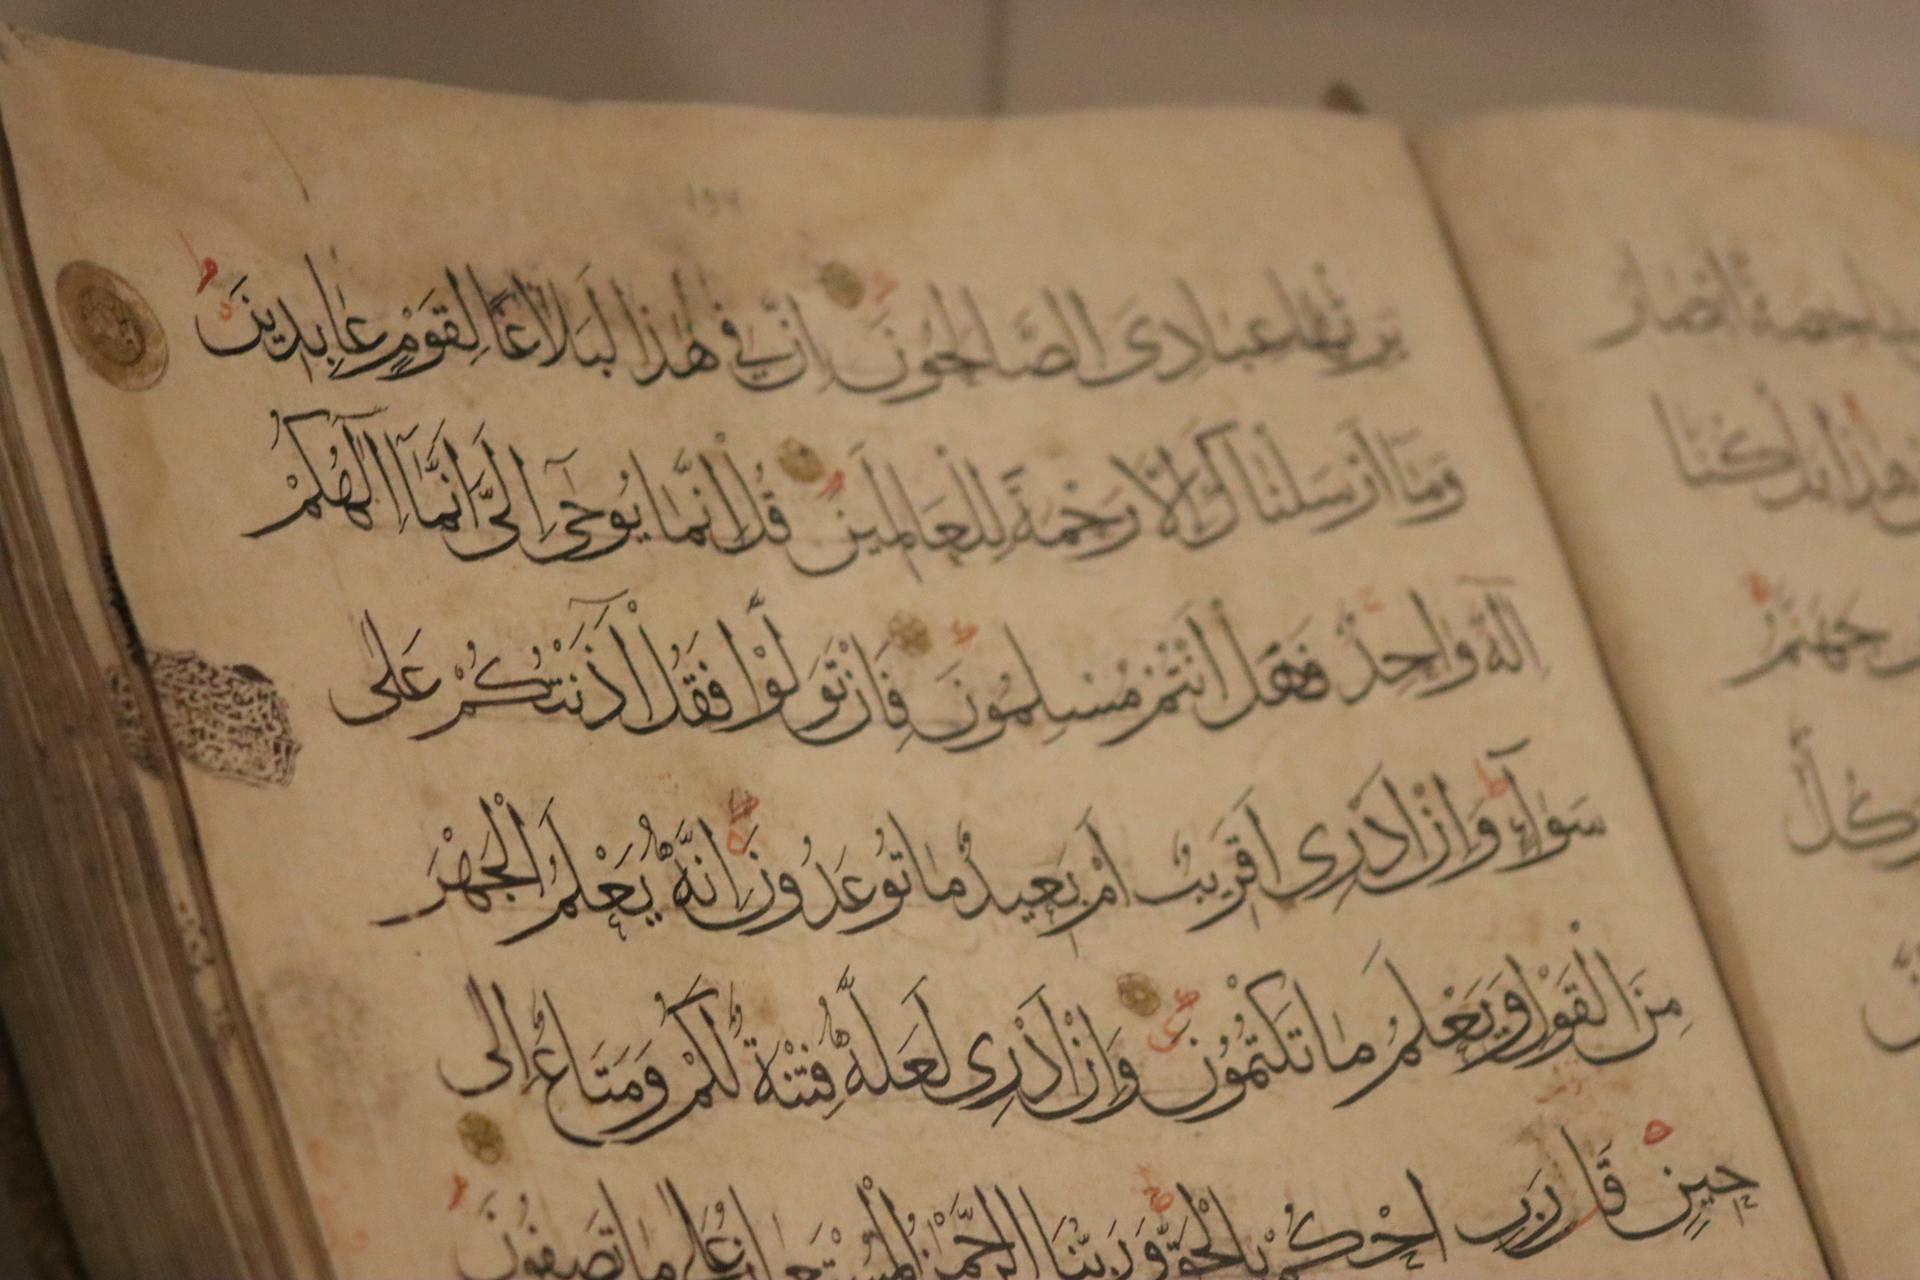 ١٥٧
يرثها عبادى الصالحون ان في هذا لبلاغا لقوم عابدين
وما ارسلناك الا رحمة للعالمين قل انما يوحى الى انما الهكم
اله واحد فهل انتم مسلمون فان تولوا فقل اذنتكم على
سواء وان ادرى اقريب ام بعيد ما توعدون انه يعلم الجهر
من القول ويعلم ما تكتمون وان ادرى لعله فتنة لكم ومتاع الى
حين قال رب احكم بالحق وربنا الرحمن المستعان على ما تصفون
انصار
كنا
جهنم
وكل